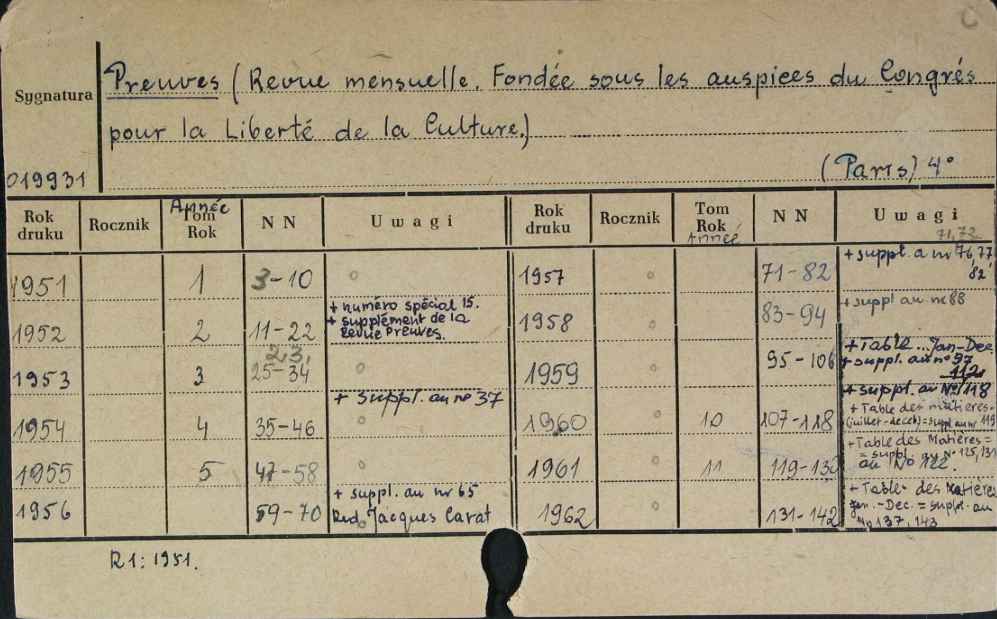 C
Preuves (Revue mensuelle. Fondée sous les auspices du Congrés
Sygnatura
pour la Liberté de la Culture.)
019931
(Paris) 4°
Rok druku Rocznik Année Tom Rok NN Uwagi Rok druku Rocznik Tom Rok Année NN Uwagi
1951 1 3-10
1952 2 11-22 + numéro spécial 15.
+ supplément de la
Revue Preuves.
1953 3 23,
25-34
1954 4 35-46 + suppl. au nº 37
1955 5 47-58
1956 59-70 + suppl. au nr 65
Red. Jacques Carat
1957 71-82 71,72
+ suppl. a nr 76,77
82
1958 83-94 + suppl au nr 88
1959 95-106 + Table... Jan-Dec.
+ suppl. au nº 97
112
+ suppl. au Nº 118
1960 10 107-118 + Table des matières-
(juillet-déceb) = suppl au nr 119
1961 11 119-130 + Table des Matières =
= suppl. au Nº 125, 131
au Nº 122.
1962 131-142 + Table des Matières
Jan.-Dec. = suppl. au
Nº 137, 143
R1: 1951.